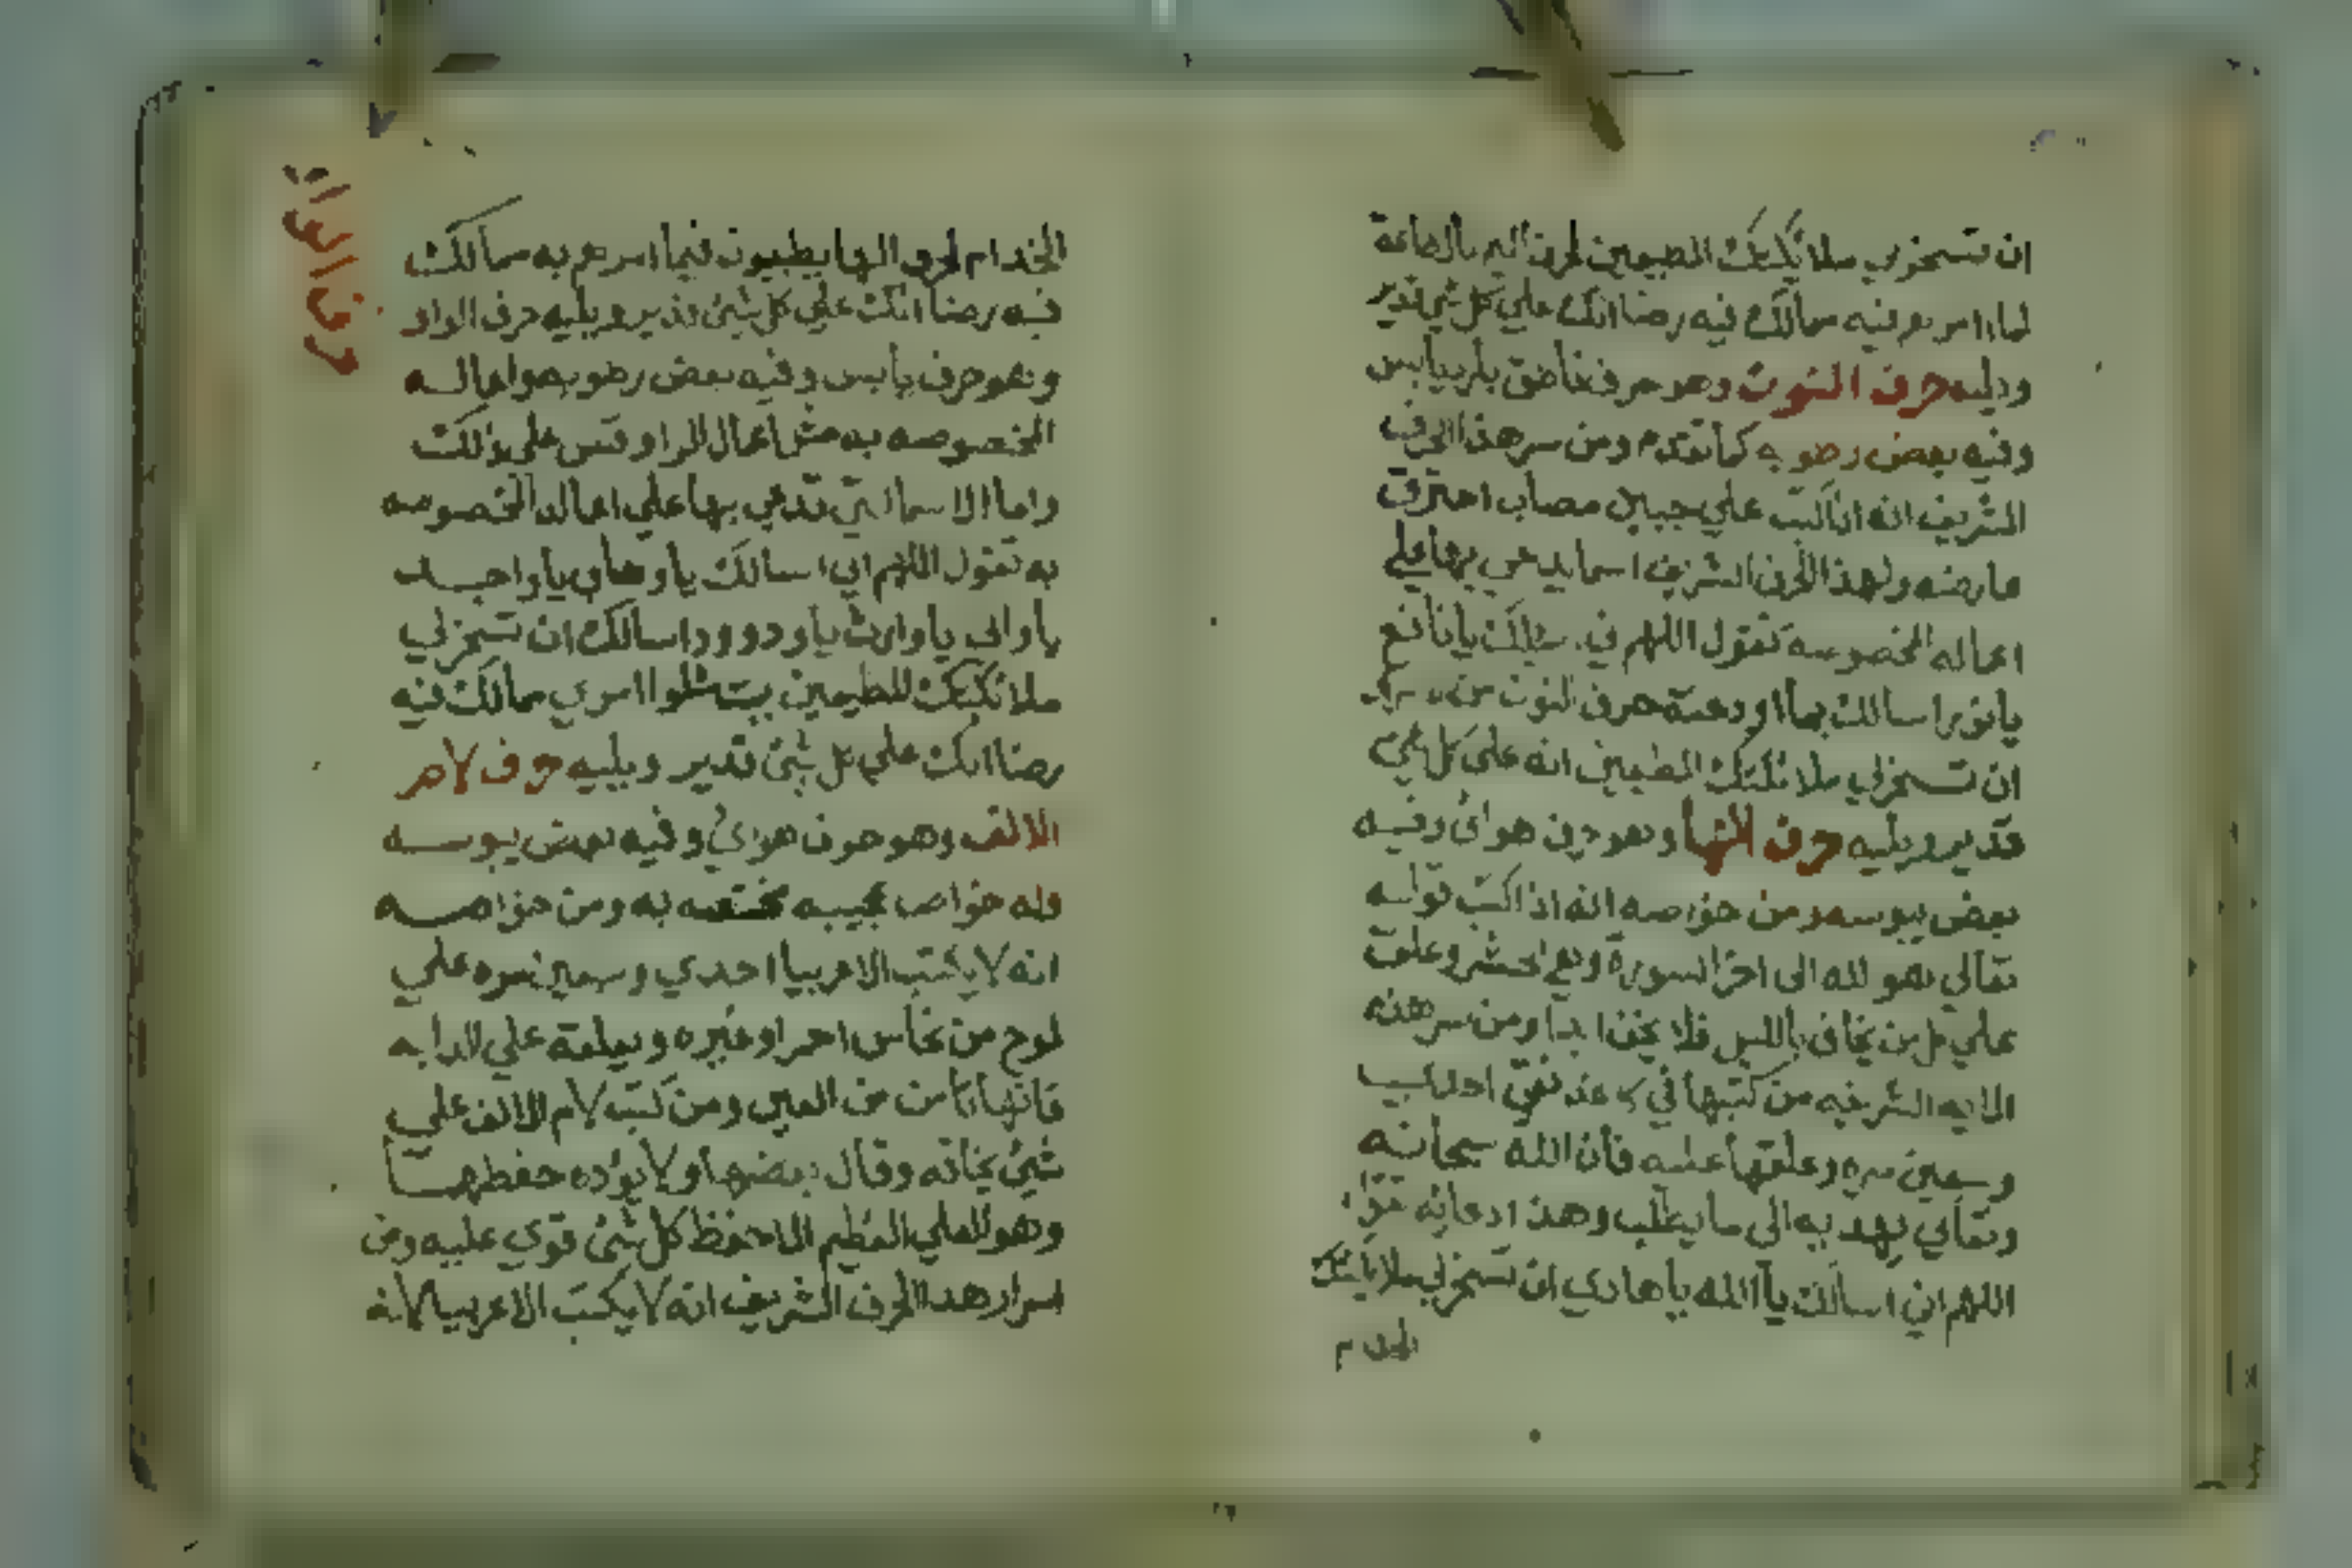 ان تسخرلي ملائكتك المطيعين لحرف النون بالطاعة
لما امرهم فيه مما لك فيه رضا انك علي كل شي قدير
ويليه حرف النون وهو حرف ناطق يابس
وفيه بعض رطوبه كما تقدم ومن سر هذا الحرف
الشريف انه اذا كتب علي جبين مصاب احترق
عارضه ولهذا الحرف الشريف اسما يدعي بها علي
اعماله المخصوصة تقول اللهم اني اسئلك يا نافع
يا نور اسالك بما اودعته حرف النون من
ان تسخرلي ملائكتك المطيعين انه علي كل شي
قدير ويليه حرف الها وهو حرف هوائ وفيه
بعض يبوسه ومن خواصه انه اذا كتب قوله
تعالي هو الله الى اخر السورة وهي الحشر وعلق
علي كل من يخاف بالليل فلا يخف ابدا ومن سر هذه
الايه الشريفه من كتبها في كاغد نقي احد
وسبعين مره وعلقها عليه فان الله سبحانه
وتعالي يهديه الى ما يطلب وهذا دعائه تقول
اللهم اني اسالك يا الله يا هادي ان تسخرلي ملائكتك
الخدام
الخدام لحرف الها يطيعون فيما امرهم به مما لك
فيه رضا انك علي كل شئ قدير ويليه حرف الواو
حرف الواو
وهو حرف يابس وفيه بعض رطوبه واعماله
المخصوصه به مثل اعمال الرا وقس علي ذلك
واما الاسما التي تدعي بها علي اعماله المخصوصه
به تقول اللهم اني اسالك يا وهاب يا واجد
يا والي يا وارث يا ودود اسالك ان تسخرلي
ملائكتك المطيعين يمتثلوا امري مما لك فيه
رضا انك علي كل شئ قدير ويليه حرف لام
الالف وهو حرف هوائي وفيه بعض يبوسه
وله خواص عجيبه مختصه به ومن خواصه
انه لا يكتب الا عربيا احدي وسبعين مره علي
لوح من نحاس احمر او غيره ويعلقه علي الدابه
فانها تامن من العين ومن كتب لام الالف علي
شئ يخافه وقال بعضها ولا يؤده حفظهما
وهو العلي العظيم الا حفظ كل شئ قوي عليه ومن
اسرار هذا الحرف الشريف انه لا يكتب الا عربيا لانه